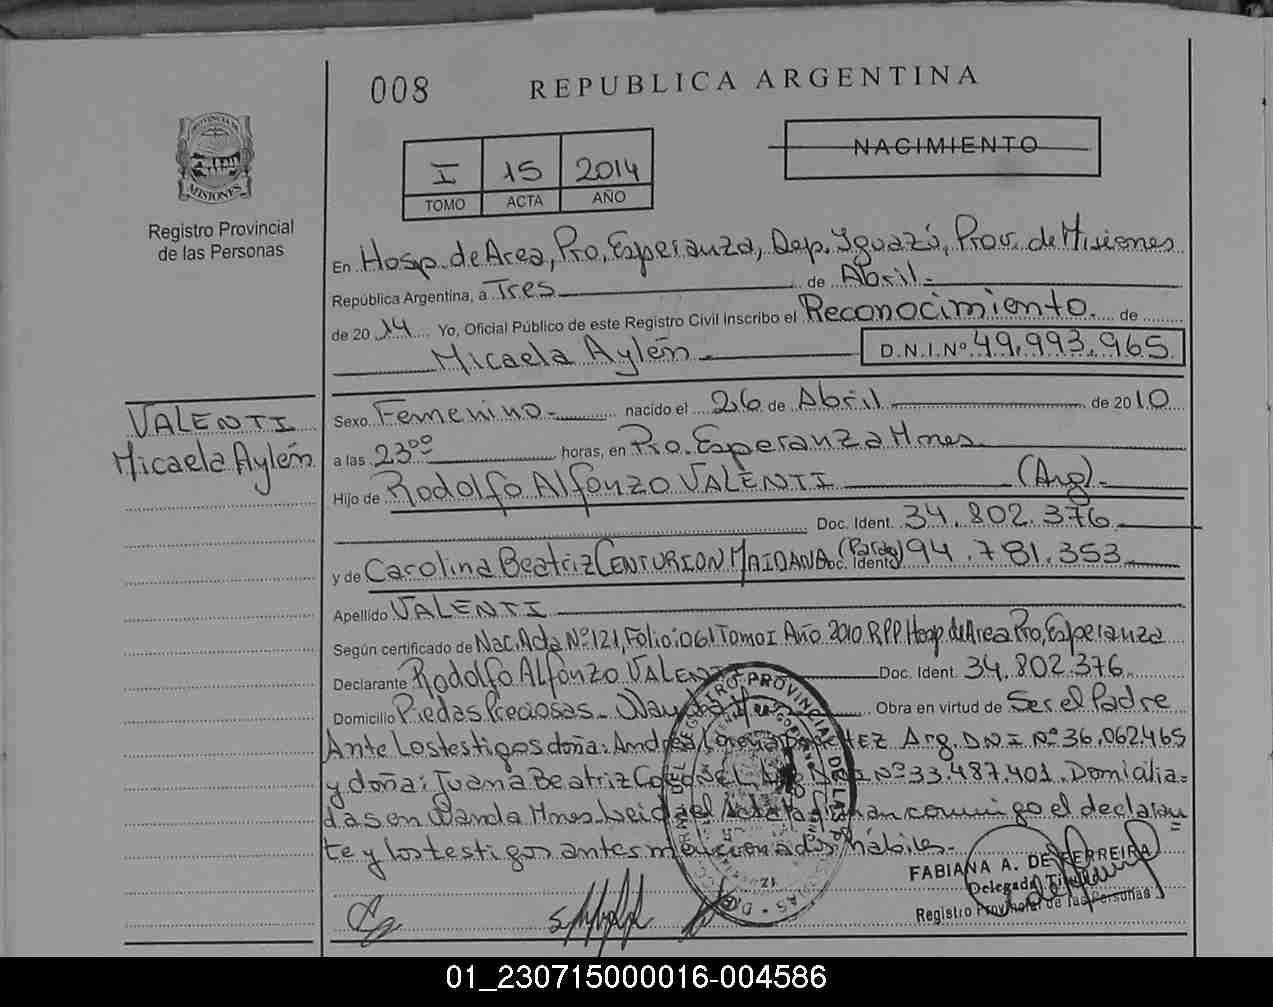 008
REPUBLICA ARGENTINA
NACIMIENTO
I 15 2014
TOMO ACTA AÑO
PROVINCIA DE
MISIONES
Registro Provincial
de las Personas
En Hosp. de Area, Pto. Esperanza, Dep. Iguazú, Prov. de Misiones
República Argentina, a Tres de Abril.-
de 2014 Yo, Oficial Público de este Registro Civil inscribo el Reconocimiento. de
Micaela Aylén D.N.I.Nº 49.993.965
VALENTI
Micaela Aylén
Sexo Femenino.- nacido el 26 de Abril de 2010
a las 23:00 horas, en Pto. Esperanza Mnes
Hijo de Rodolfo Alfonzo VALENTI (Arg).-
Doc. Ident. 34.802.376
y de Carolina Beatriz CENTURION MAIDANA (Parag) Doc. Ident. 94.781.353
Apellido VALENTI
Según certificado de Nac. Acta Nº 121, Folio: 061 Tomo I Año 2010 RPP Hosp de Area Pto, Esperanza
Declarante Rodolfo Alfonzo VALENTI Doc. Ident. 34.802.376
Domicilio Piedas Preciosas - Wanda Obra en virtud de Ser el Padre
Ante Los testigos doña: Andrea Arg. D.N.I. Nº 36.062.465
y doña: Juana Beatriz Nº 33.487.401. Domicilia=
das en Wanda Mnes. Leida el Acta la firman conmigo el declaran=
te y los testigos antes mencionados hábiles.-
REGISTRO PROVINCIAL DE LAS
FABIANA A. DE FERREIRA
Delegada Titular
Registro Provincial de las Personas
01_230715000016-004586